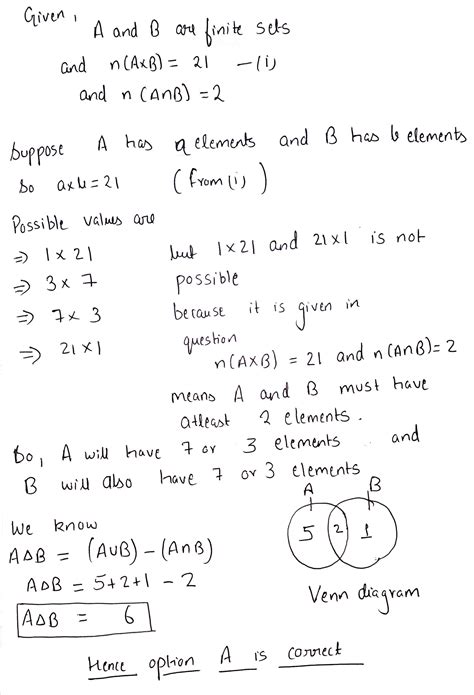 Given,
A and B are finite sets
and n(A×B) = 21 –(i)
and n(A∩B) = 2
Suppose A has a elements and B has b elements
So a×b=21 (from(i))
Possible values are
⇒ 1 × 21
⇒ 3 × 7
⇒ 7 × 3
⇒ 21 × 1
but 1×21 and 21×1 is not
possible
because it is given in
question
n(A×B) = 21 and n(A∩B)=2
means A and B must have
atleast 2 elements.
So, A will have 7 or 3 elements and
B will also have 7 or 3 elements
We know
A∆B = (A∪B) – (A∩B)
A∆B = 5+2+1 – 2
A∆B = 6
A B
5 2 1
Venn diagram
Hence option A is correct